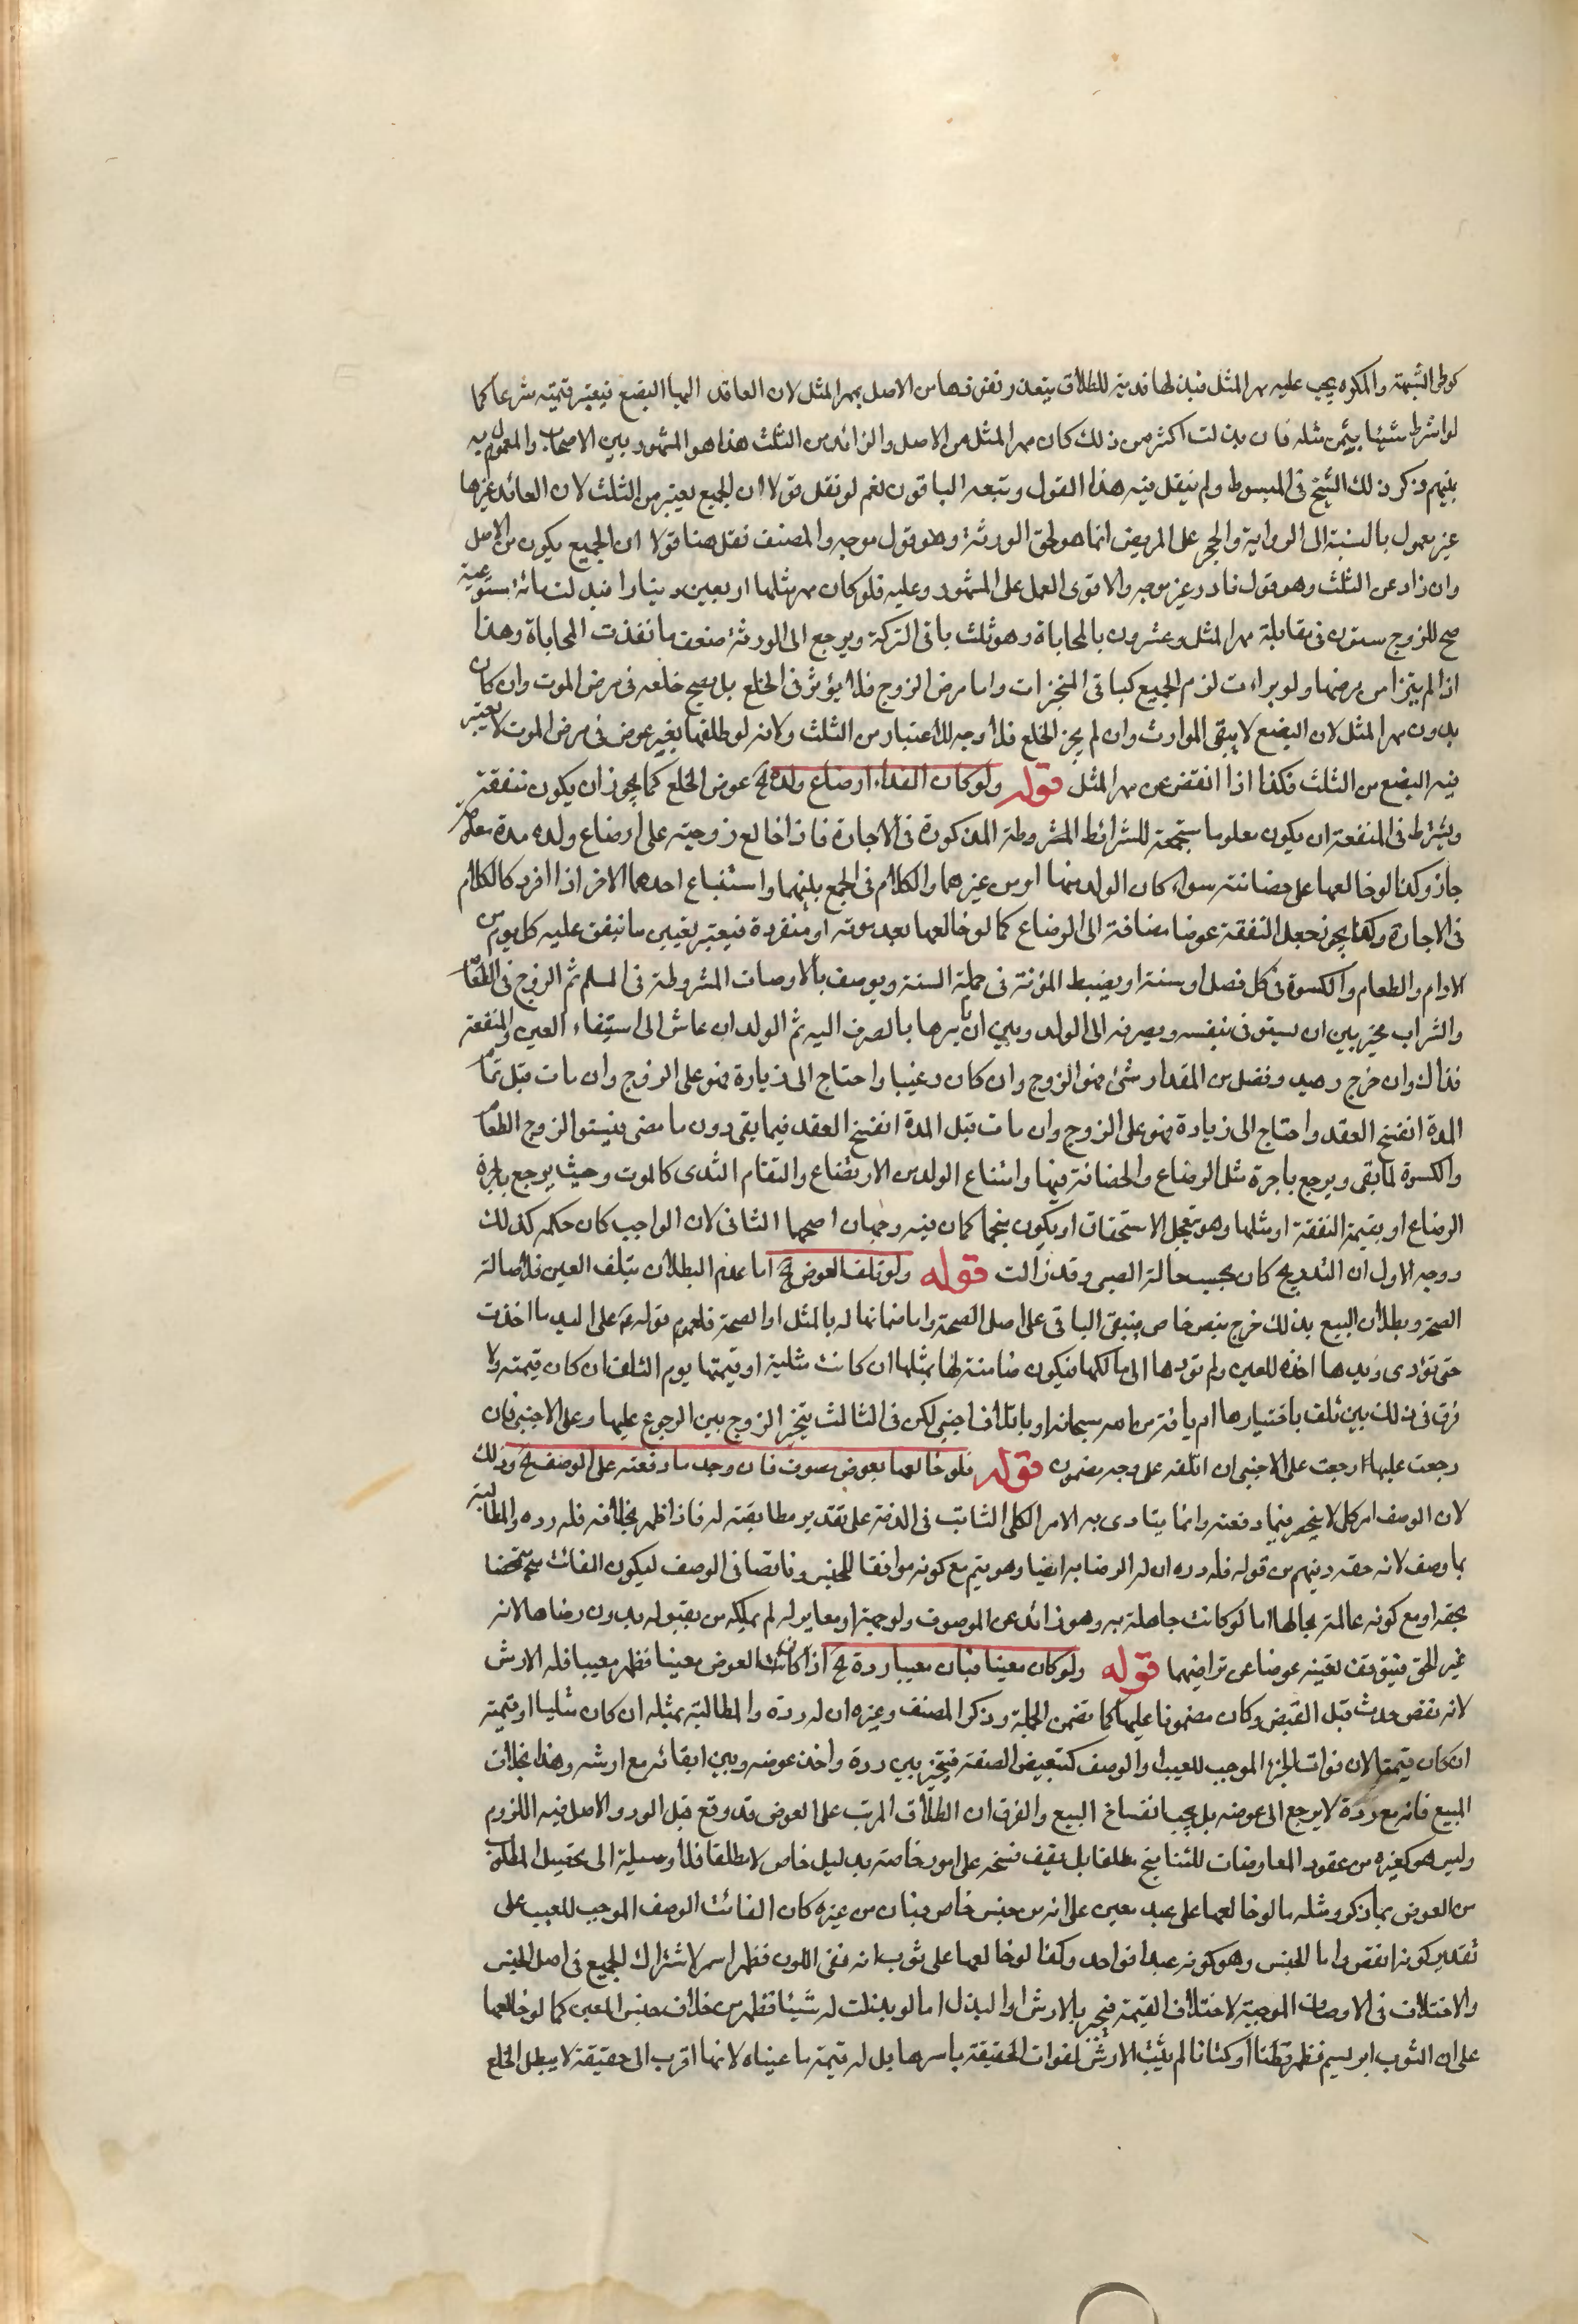 كوطى الشبهة والمكره يجب عليه مهر المثل فبذلها فدية للطلاق يتعذر نفوذها من الاصل بمهر المثل لان العائد اليها البضع فيعتبر قيمته شرعا كما
لو اشترط شيئا بثمن مثله فان بذلت اكثر من ذلك كان مهر المثل من الاصل والزائد من الثلث هذا هو المشهور بين الاصحاب والمعمول به
بينهم ذكر ذلك الشيخ فى المبسوط ولم ينقل فيه هذا القول وتبعه الباقون نعم لو نقل قولا ان الجميع يعتبر من الثلث لان العائد غيرها
غير معمول بالنسبة الى الوراية والحجر على المريض انما هو لحق الورثة وهو قول موجه والمصنف نقل هنا قولا ان الجميع يكون من الاصل
وان زاد عن الثلث وهو قول نادر غير موجه والاقوى العمل على المشهور وعليه فلو كان مهر مثلها اربعين دينارا فبذلت مائة مستوعبة
صح للزوج ستون فى مقابلة مهر المثل وعشرون بالمحاباة وهو ثلث باقى التركة ويرجع الى الورثة ضعف ما نفذت المحاباة وهذا
اذا لم يتبرا من مرضها ولو براءت لزم الجميع كباقى المنجزات واما مرض الزوج فلا يؤثر فى الخلع بل يصح خلعه فى مرض الموت وان كان
بدون مهر المثل لان البضع لا يبقى للوارث وان لم يجز الخلع فلا وجه للاعتبار من الثلث ولانه لو طلقها بغير عوض فى مرض الموت لا يعتبر
فيه البضع من الثلث فكذا اذا انقض عن مهر المثل قوله ولو كان الفداء ارضاع ولده الخ عوض الخلع كما يجوز ان يكون منفعة
ويشترط فى المنفعة ان يكون معلوما مستجمعة للشرائط المشروطة المذكورة فى الاجارة فاذا خالع زوجته على ارضاع ولده مدة معلومة
جاز وكذا لو خالعها على حضانته سواء كان الولد منها او من غيرها والكلام فى الجمع بينهما واستتباع احدهما الاخر اذا افرد كالكلام
فى الاجارة وكذا يجوز جعل النفقة عوضا مضافة الى الرضاع كما لو خالعها بعد موته او منفردة فيعتبر تعيين ما ينفق عليه كل يوم من
الادام والطعام والكسوة فى كل فصل او سنة او يضبط المؤنة فى جملة السنة ويوصف بالاوصاف المشروطة فى السلم ثم الزوج فى الطعام
والشراب مخير بين ان يستوفى بنفسه ويصرفه الى الولد وبين ان يامرها بالصرف اليه ثم الولد ان عاش الى استيفاء العين والمنفعة
فذاك وان خرج رصيد وفضل من المقدار شئ فهو للزوج وان كان رغيبا واحتاج الى زيادة فهو على الزوج وان مات قبل تمام
المدة انفسخ العقد واحتاج الى زيادة فهو على الزوج وان مات قبل المدة انفسخ العقد فيما بقى دون ما مضى فيستوفى الزوج الطعام
والكسوة لما بقى ويرجع باجرة مثل الرضاع والحضانة فيها وامتناع الولد من الارتضاع والتقام الثدى كالموت وحيث يرجع باجرة
الرضاع او بقيمة النفقة او مثلها وهو يتعجل الاستحقاق او يكون منجما كمان فيه وجهان اصحهما الثانى لان الواجب كان حكمه كذلك
ووجه الاول ان التدريج كان بحسب حالة الصبى وقد زالت قوله ولو تلف العوض الخ اما عدم البطلان بتلف العين فلاصالة
الصحة وبطلان البيع بذلك خرج بنص خاص فيبقى الباقى على اصل الصحة واما ضمانها له بالمثل او الصحة فلعموم قوله ع على اليد ما اخذت
حتى تؤدى ويدها اخذة للعين ولم تؤدها الى مالكها فيكون ضامنة لها بمثلها ان كانت مثلية او قيمتها يوم التلف ان كان قيمته ولا
فرق فى ذلك بين تلف باختيارها ام بافة من الله سبحانه او باتلاف اجنبى لكن فى الثالث يتخير الزوج بين الرجوع عليها وعلى الاجنبى فان
رجعت عليها رجعت على الاجنبى ان اتلفه على وجه مضمون قوله فلو خالعها بعوض موصوف فان وجد ما دفعته على الوصف الخ وذلك
لان الوصف امر كلى لا ينحصر فيما دفعته وانما يتادى به الامر الكلى الثابت فى الذمة على تقدير مطابقته له فاذا ظهر بخلافه فله رده والمطالبة
بما وصف لانه حقه ويفهم من قوله فله رده ان له الرضا به ايضا وهو يتم مع كونه موافقا للجنس وناقصا فى الوصف ليكون الفائت متمحضا
بحقه او مع كونه عالمة بحالها اما لو كانت جاهلة به وهو زائد عن الموصوف ولو جهة او معاير له لم يملكه من بقبوله بدون رضاها لانه
غير الحق فيتوقف تعينه عوضا عن تراضيهما قوله ولو كان معينا فبان معيبا رده الخ اذا كان العوض معينا فظهر معيبا فله الارش
لانه نقص حدث قبل القبض وكان مضمونا عليها كما تضمن الجملة وذكر المصنف وغيره ان له رده والمطالبة بمثله ان كان مثليا او قيمته
ان كان قيميا لان فوات الجزء الموجب للعيب او الوصف كتبعيض الصفقة فيتخير بين رده واخذ عوضه وبين ابقائه مع ارشه وهذا بخلاف
المبيع فانه مع رده لا يرجع الى عوضه بل يجب انفساخ البيع والفرق ان الطلاق المرتب على العوض قد وقع قبل الرد والاصل فيه اللزوم
وليس هو كغيره من عقود المعاوضات للتفاسخ مطلقا بل يقف فسخه على امور خاصة بدليل خاص لا مطلقا فلا وسيلة الى تحصيل المطلوب
من العوض بما ذكر ومثله ما لو خالعها على عبد معين على انه من جنس خاص فبان من غيره كان الفائت الوصف الموجب للعيب على
تقدير كونه انقص واما الجنس وهو كونه عبدا فواحد وكذا لو خالعها على ثوب انه نقى اللون فظهر اسمر لاشتراك الجميع فى اصل الجنس
والاختلاف فى الاوصاف الموجبة لاختلاف القيمة فيجبر بالارش او البذل اما لو بذلت له شيئا فظهر من خلاف جنس المعين كما لو خالعها
على ان الثوب ابريسم فظهر قطنا او كتانا لم يثبت الارش لفوات الحقيقة باسرها بل له قيمة ما عيناه لانها اقرب الى حقيقة لا يبطل الخلع